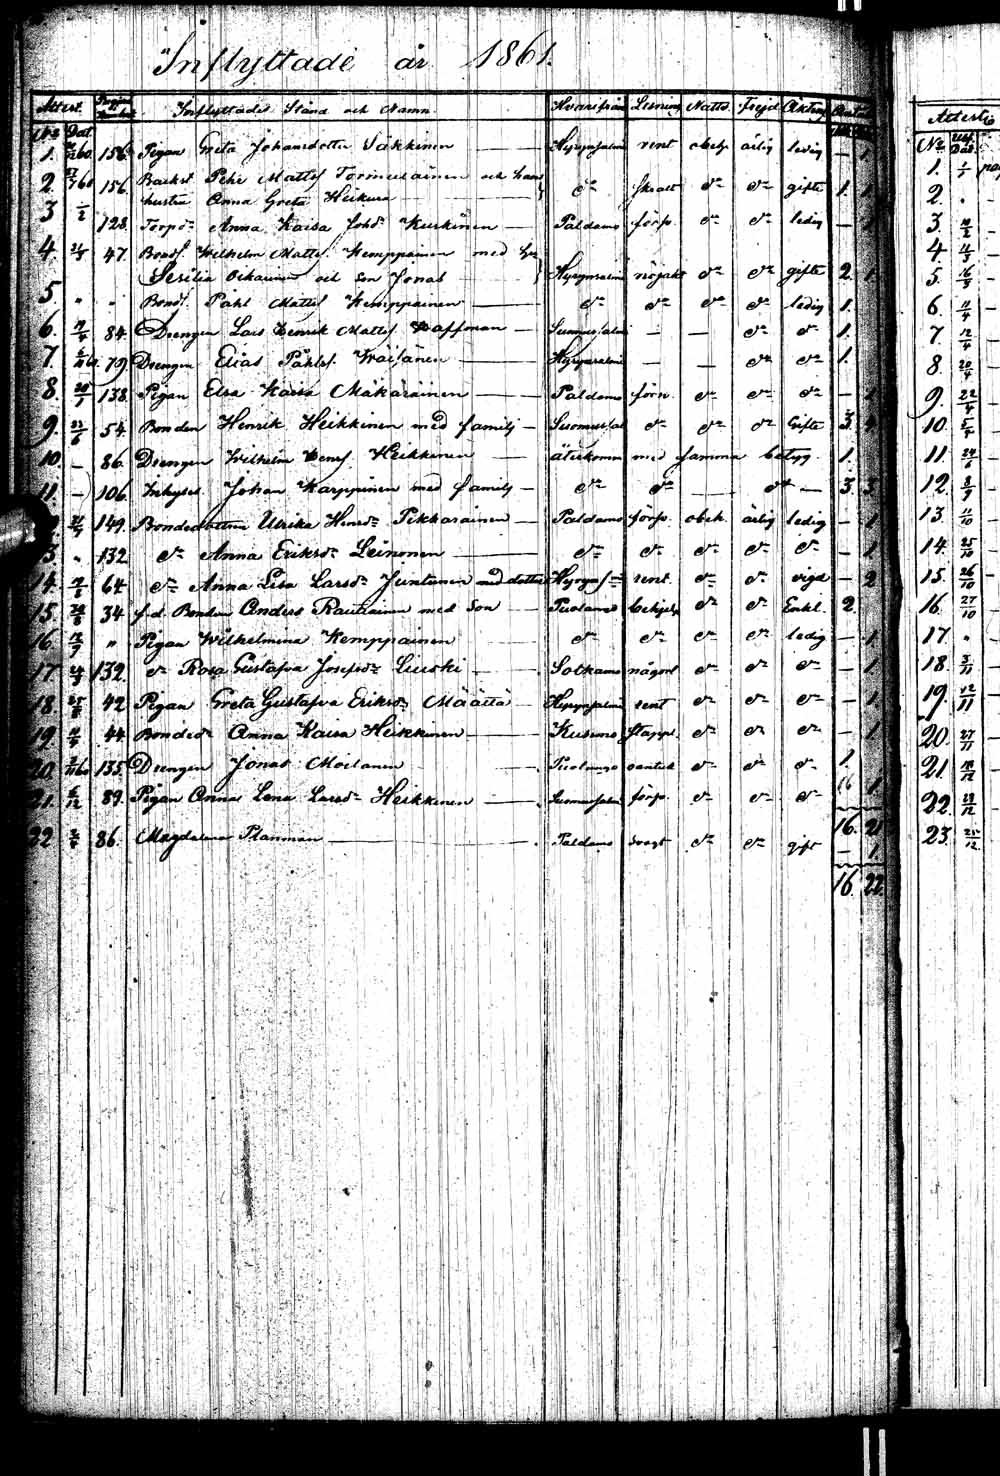 Inflyttade år 1861.
Attest. Inflyttades Stånd och Namn Hvarifrån Läsning Nattv. Frejd Äktensk.
No Dat.
1. 156. Pigan Greta Johansdotter Säkkinen — Hyrynsalmi rent obeh. ärlig ledig — 1.
2. 156. Backst. Pehr Matts. Tormulainen och hans
hustru Anna Greta Heikura do skralt do do gifte 1. 1.
3 1/2 128. Torpd. Anna Kaisa Johd. Keränen — Paldamo förs. do do ledig — 1.
4. 47. Bond. Wilhelm Matts. Kemppainen med hu
Sesilia Oikarinen och son Jonas Hyrynsalmi nöjakt do do gifte 2. 1.
5. " " Bond. Påhl Matts. Kemppainen — do do do do ledig 1.
6. 84. Drengen Lars Henrik Matts. Haffman — Suomussalmi — — do do 1.
7. 79. Drengen Elias Påhls. Waisänen — Hyrynsalmi — — do do 1.
8. 138. Pigan Elsa Kaisa Mäkäräinen — Paldamo förs. do do do — 1.
9. 23/6 54. Bonden Henrik Heikkinen med familj — Suomussal do do do Gifte 3. 4.
10. — 86. Drengen Wilhelm Henr. Heikkinen — återkomm med samma betyg 1.
11. — 106. Inhyses Johan Karppinen med familj — do do — do — 3. 3.
149. Bondedottren Ulrika Henrsdr Pikkarainen — Paldamo förs. obeh. ärlig ledig — 1.
3. " 132 do Anna Eriksdr Leinonen — do do do do do — 1.
14. 64 do Anna Lisa Larsdr Juntunen med dotter Hyryns rent. do do vigd — 2
15. 34 f.d. Bonden Anders Rautiainen med son — Puolango do do Enkl. 2.
16. " Pigan Wilhelmina Kemppainen do do do do ledig — 1.
17. 132. do Rosa Gustafva Josefsdr Liuski — Sotkamo någorl do do do — 1.
18. 42 Pigan Greta Gustafva Eriksdr Määttä — Hyrynsalmi rent do do do — 1.
19. 44. Bonded. Anna Kaisa Heikkinen — Kusamo do do do — 1.
20. 135. Drengen Jonas Moilanen — Puolango do do do 1.
21. 5/12 89. Pigan Anna Lena Larsdr Heikkinen — Suomussalm förs. do do do 1.
16. 21
22 86. Magdalena Planman — Paldamo svagt do do gift — 1.
16. 22.
Attest
No
1.
2.
3.
4.
5.
6.
7. 12/4
8. 20/4
9. 22/4
10.
11. 24/6
12. 8/9
13. 11/10
14. 25/10
15. 26/10
16. 27/10
17. "
18. 3/11
19. 12/11
20. 27/11
21.
22.
23.